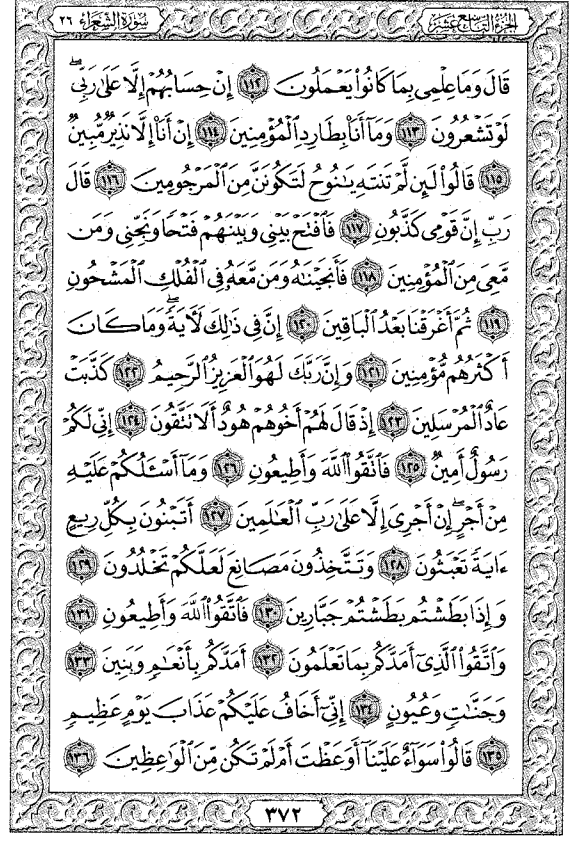 الجزء التاسع عشر
سورة الشعراء ٢٦
قَالَ وَمَا عِلْمِى بِمَا كَانُوا۟ يَعْمَلُونَ ١١٢ إِنْ حِسَابُهُمْ إِلَّا عَلَىٰ رَبِّى ۖ
لَوْ تَشْعُرُونَ ١١٣ وَمَآ أَنَا۠ بِطَارِدِ ٱلْمُؤْمِنِينَ ١١٤ إِنْ أَنَا۠ إِلَّا نَذِيرٌ مُّبِينٌ
١١٥ قَالُوا۟ لَئِن لَّمْ تَنتَهِ يَـٰنُوحُ لَتَكُونَنَّ مِنَ ٱلْمَرْجُومِينَ ١١٦ قَالَ
رَبِّ إِنَّ قَوْمِى كَذَّبُونِ ١١٧ فَٱفْتَحْ بَيْنِى وَبَيْنَهُمْ فَتْحًا وَنَجِّنِى وَمَن
مَّعِىَ مِنَ ٱلْمُؤْمِنِينَ ١١٨ فَأَنجَيْنَـٰهُ وَمَن مَّعَهُۥ فِى ٱلْفُلْكِ ٱلْمَشْحُونِ
١١٩ ثُمَّ أَغْرَقْنَا بَعْدُ ٱلْبَاقِينَ ١٢٠ إِنَّ فِى ذَٰلِكَ لَـَٔايَةً ۖ وَمَا كَانَ
أَكْثَرُهُم مُّؤْمِنِينَ ١٢١ وَإِنَّ رَبَّكَ لَهُوَ ٱلْعَزِيزُ ٱلرَّحِيمُ ١٢٢ كَذَّبَتْ
عَادٌ ٱلْمُرْسَلِينَ ١٢٣ إِذْ قَالَ لَهُمْ أَخُوهُمْ هُودٌ أَلَا تَتَّقُونَ ١٢٤ إِنِّى لَكُمْ
رَسُولٌ أَمِينٌ ١٢٥ فَٱتَّقُوا۟ ٱللَّهَ وَأَطِيعُونِ ١٢٦ وَمَآ أَسْـَٔلُكُمْ عَلَيْهِ
مِنْ أَجْرٍ ۖ إِنْ أَجْرِىَ إِلَّا عَلَىٰ رَبِّ ٱلْعَـٰلَمِينَ ١٢٧ أَتَبْنُونَ بِكُلِّ رِيعٍ
ءَايَةً تَعْبَثُونَ ١٢٨ وَتَتَّخِذُونَ مَصَانِعَ لَعَلَّكُمْ تَخْلُدُونَ ١٢٩
وَإِذَا بَطَشْتُم بَطَشْتُمْ جَبَّارِينَ ١٣٠ فَٱتَّقُوا۟ ٱللَّهَ وَأَطِيعُونِ ١٣١
وَٱتَّقُوا۟ ٱلَّذِىٓ أَمَدَّكُم بِمَا تَعْلَمُونَ ١٣٢ أَمَدَّكُم بِأَنْعَـٰمٍ وَبَنِينَ ١٣٣
وَجَنَّـٰتٍ وَعُيُونٍ ١٣٤ إِنِّىٓ أَخَافُ عَلَيْكُمْ عَذَابَ يَوْمٍ عَظِيمٍ
١٣٥ قَالُوا۟ سَوَآءٌ عَلَيْنَآ أَوَعَظْتَ أَمْ لَمْ تَكُن مِّنَ ٱلْوَٰعِظِينَ ١٣٦
٣٧٢